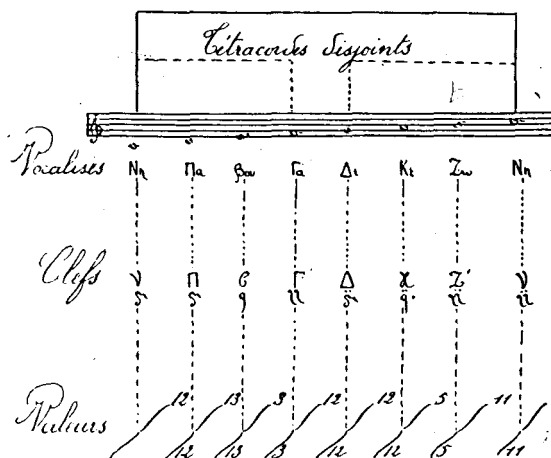 Tétracordes disjoints
Vocalises Νη Πα βου Γα Δι Κε Ζω Νη
Clefs ν Π β Γ Δ ϗ Ζ΄ ν
Valeurs 12 13 3 12 12 5 11
12 13 3 12 12 5 11